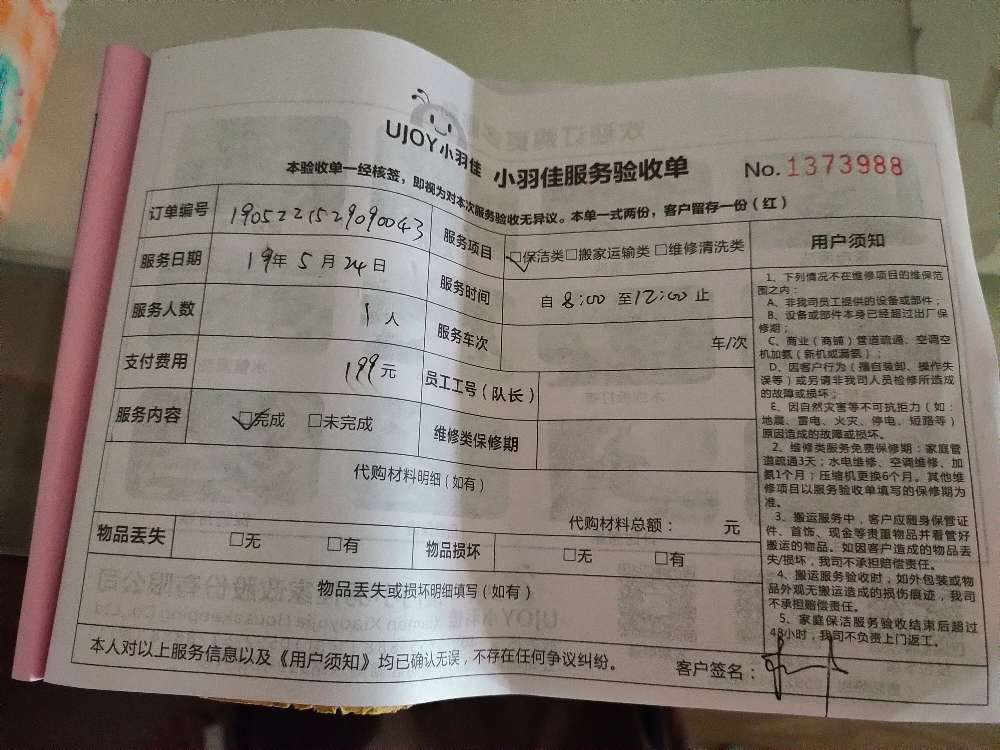 UJOY小羽佳
小羽佳服务验收单
No. 1373988
本验收单一经核签，即视为对本次服务验收无异议。本单一式两份，客户留存一份（红）
订单编号 1905221529090043 服务项目 ☑保洁类□搬家运输类□维修清洗类
服务日期 19年5月24日 服务时间 自8:00至12:00止
服务人数 1人 服务车次 车/次
支付费用 199元 员工工号（队长）
服务内容 ☑完成 □未完成 维修类保修期
代购材料明细（如有）
代购材料总额： 元
物品丢失 □无 □有 物品损坏 □无 □有
物品丢失或损坏明细填写（如有）
本人对以上服务信息以及《用户须知》均已确认无误，不存在任何争议纠纷。
客户签名：
用户须知
1、下列情况不在维修项目的维保范
围之内：
A、非我司员工提供的设备或部件；
B、设备或部件本身已经超过出厂保
修期；
C、商业（商铺）管道疏通、空调空
机加氨（新机或漏氨）；
D、因客户行为（擅自装卸、操作失
误等）或另请非我司人员检修所造成
的故障或损坏；
E、因自然灾害等不可抗拒力（如：
地震、雷电、火灾、停电、短路等）
原因造成的故障或损坏。
2、维修类服务免费保修期：家庭管
道疏通3天；水电维修、空调维修、加
氨1个月；压缩机更换6个月。其他维
修项目以服务验收单填写的保修期为
准。
3、搬运服务中，客户应随身保管证
件、首饰、现金等贵重物品并看管好
搬运的物品。如因客户造成的物品丢
失/损坏，我司不承担赔偿责任。
4、搬运服务验收时，如外包装或物
品外观无搬运造成的损伤痕迹，我司
不承担赔偿责任。
5、家庭保洁服务验收结束后超过
48小时，我司不负责上门返工。